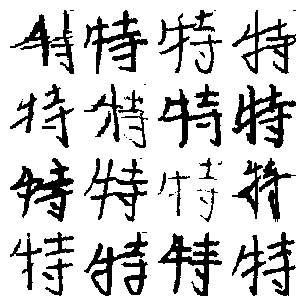 特特特特
特特特特
特特特特
特特特特